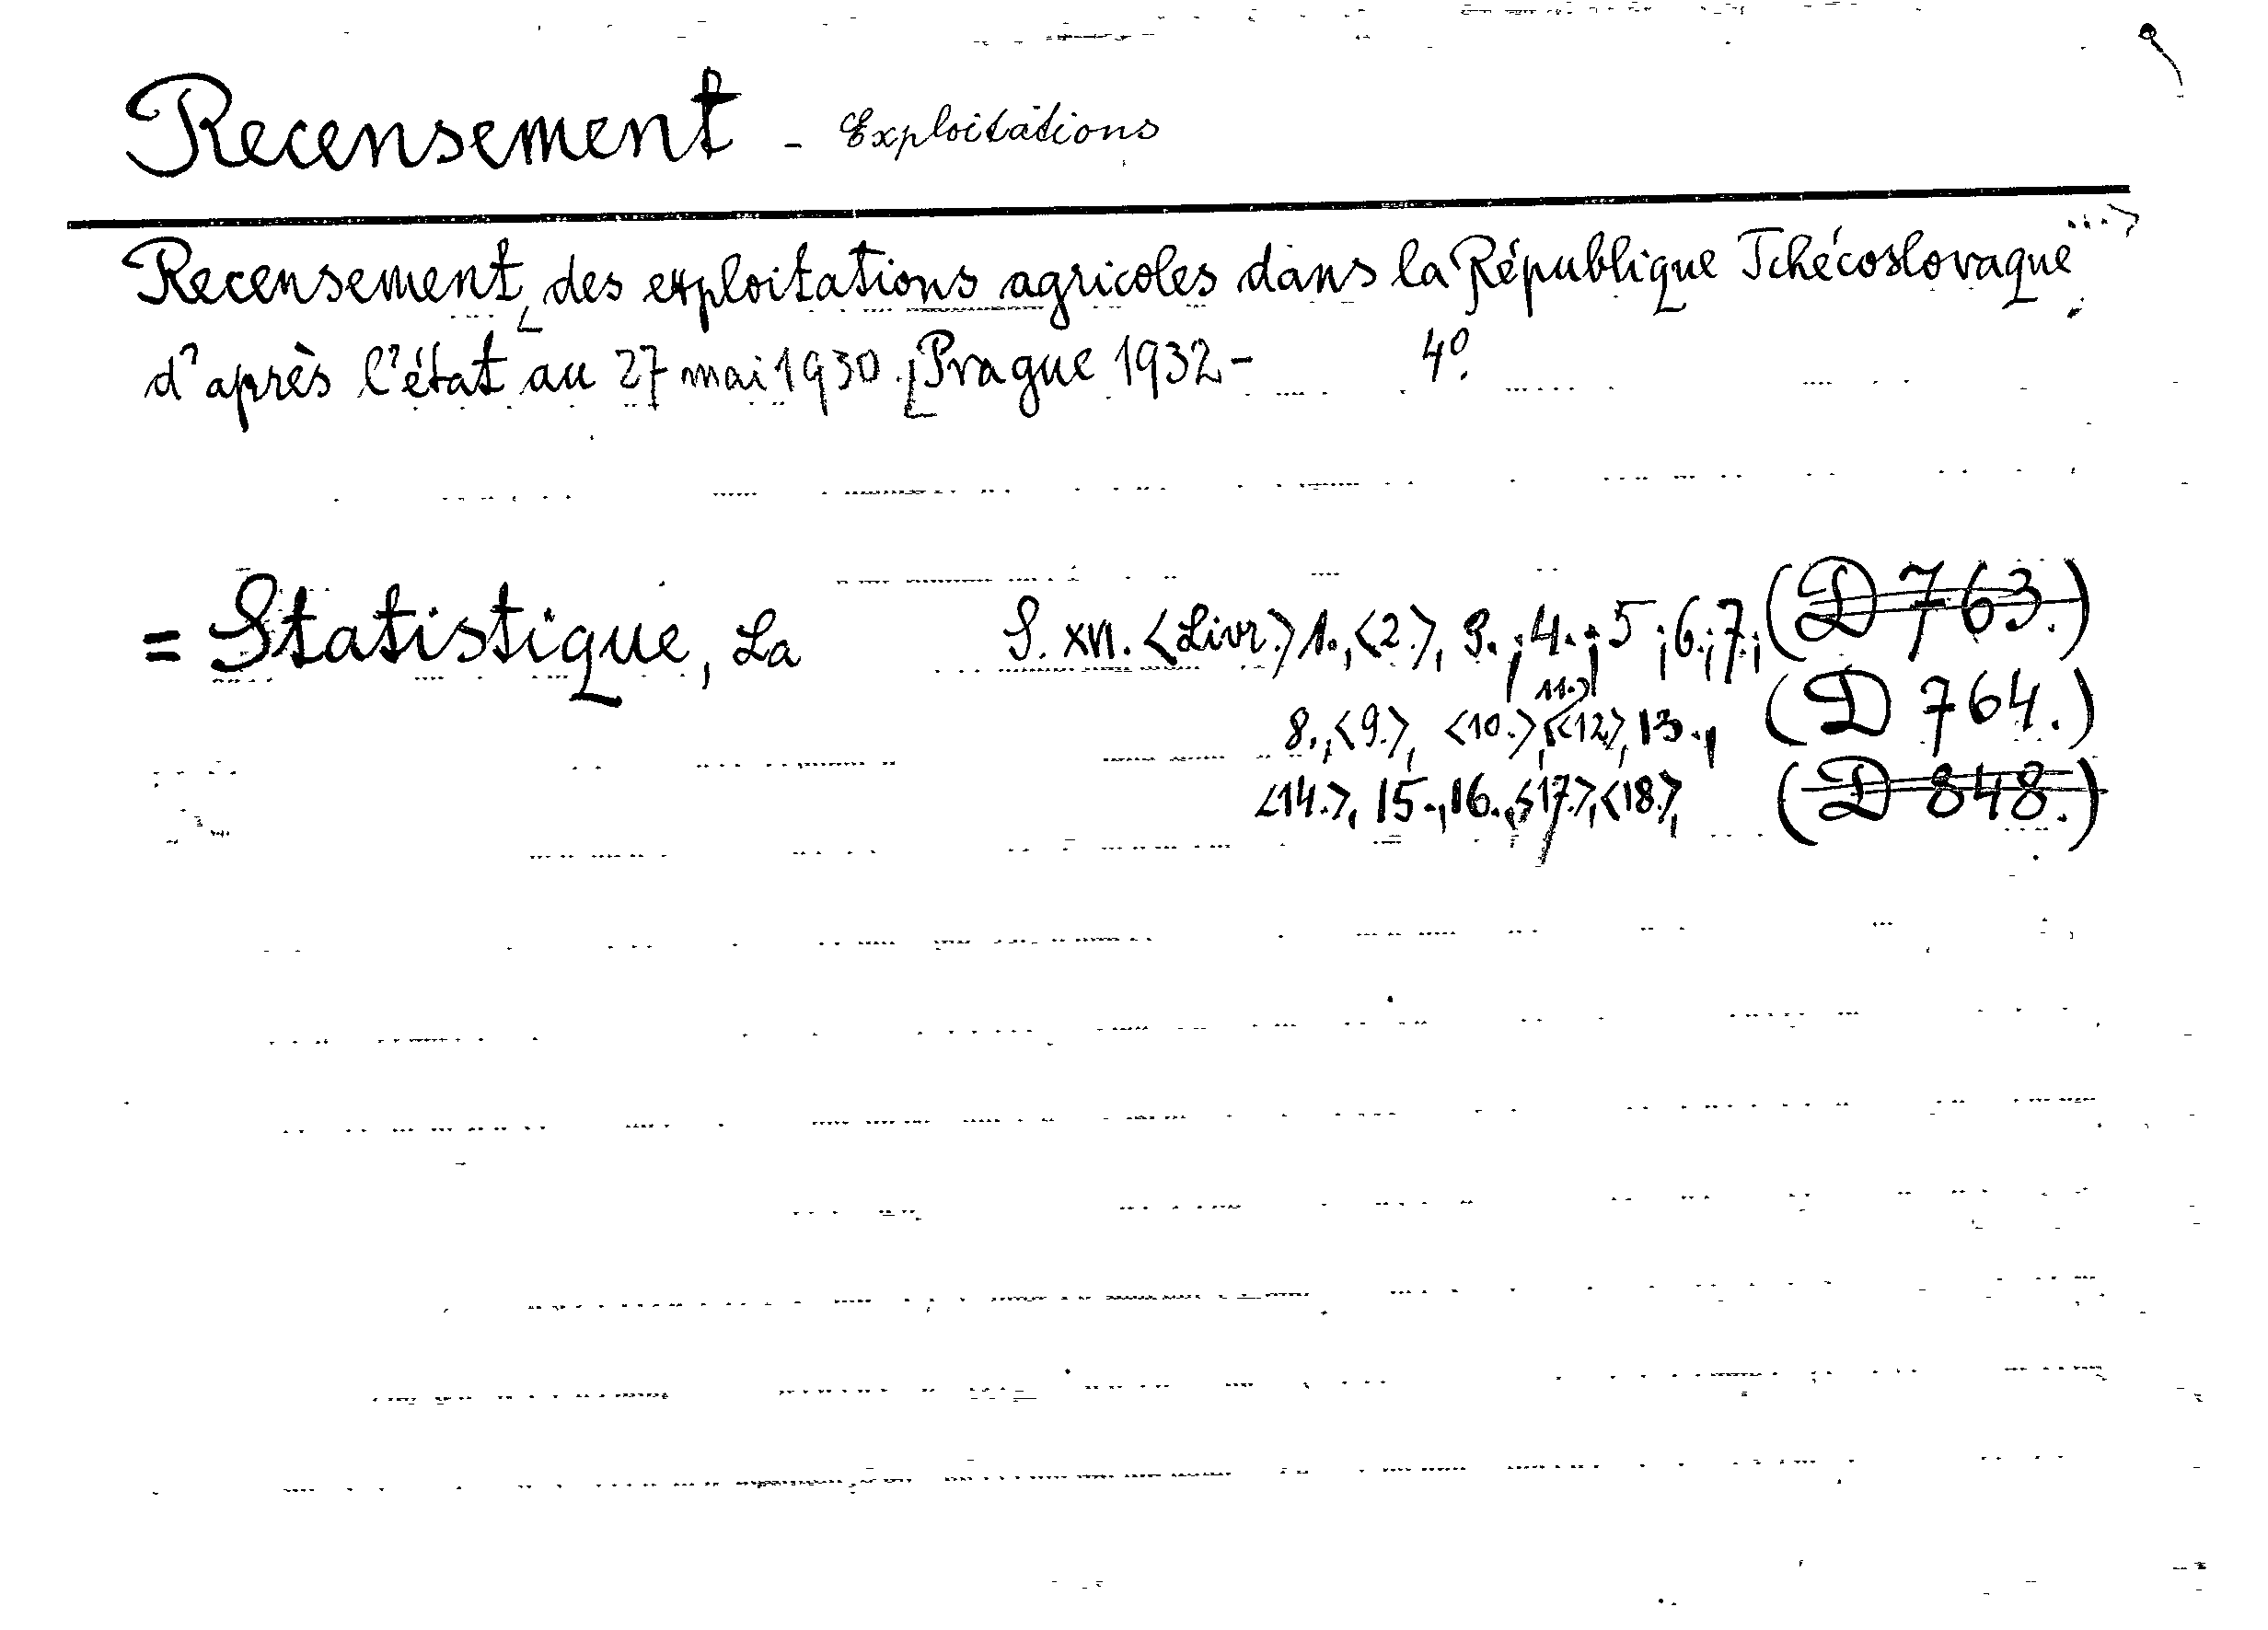 Recensement - Exploitations
Recensement des exploitations agricoles dans la République Tchécoslovaque ...>
d'après l'état au 27 mai 1930. Prague 1932- 4°.
= Statistique, La S. XVI. <Livr.> 1., <2.>, 3., 4., 5, 6., 7., (D 763.)
8., <9.>, <10.>, 11., <12.>, 13., (D 764.)
<14.>, 15., 16., <17.>, <18.>, (D 848.)